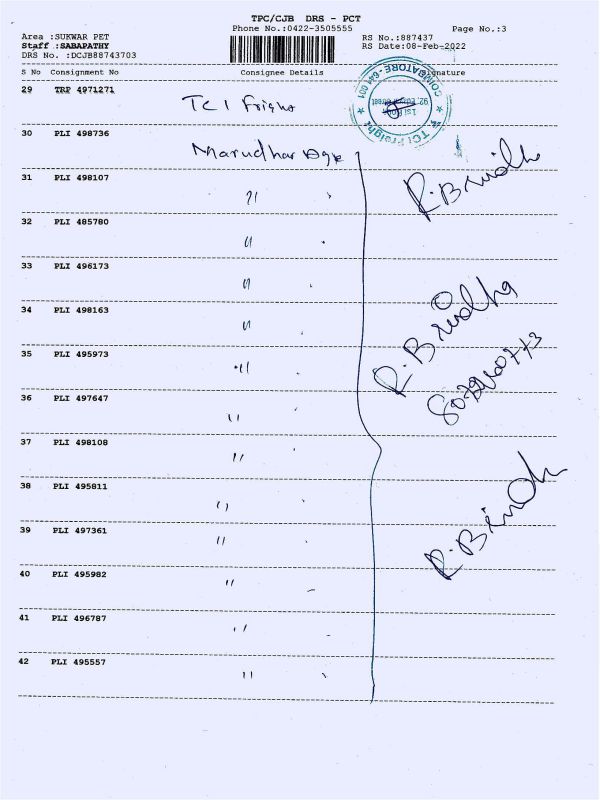 TPC/CJB DRS - PCT
Phone No.:0422-3505555
Page No.:3
Area :SUKWAR PET
Staff :SABAPATHY
DRS No. :DCJB88743703
RS No.:887437
RS Date:08-Feb-2022
S No Consignment No Consignee Details Signature
29 TRP 4971271 TCI Frieght
30 PLI 498736 Marudhar
31 PLI 498107 "
32 PLI 485780 "
33 PLI 496173 "
34 PLI 498163 "
35 PLI 495973 "
36 PLI 497647 "
37 PLI 498108 "
38 PLI 495811 "
39 PLI 497361 "
40 PLI 495982 "
41 PLI 496787 "
42 PLI 495557 "
TCI Freight
COIMBATORE - 641 001
R. Brindha
R. Brindha
R. Brindh